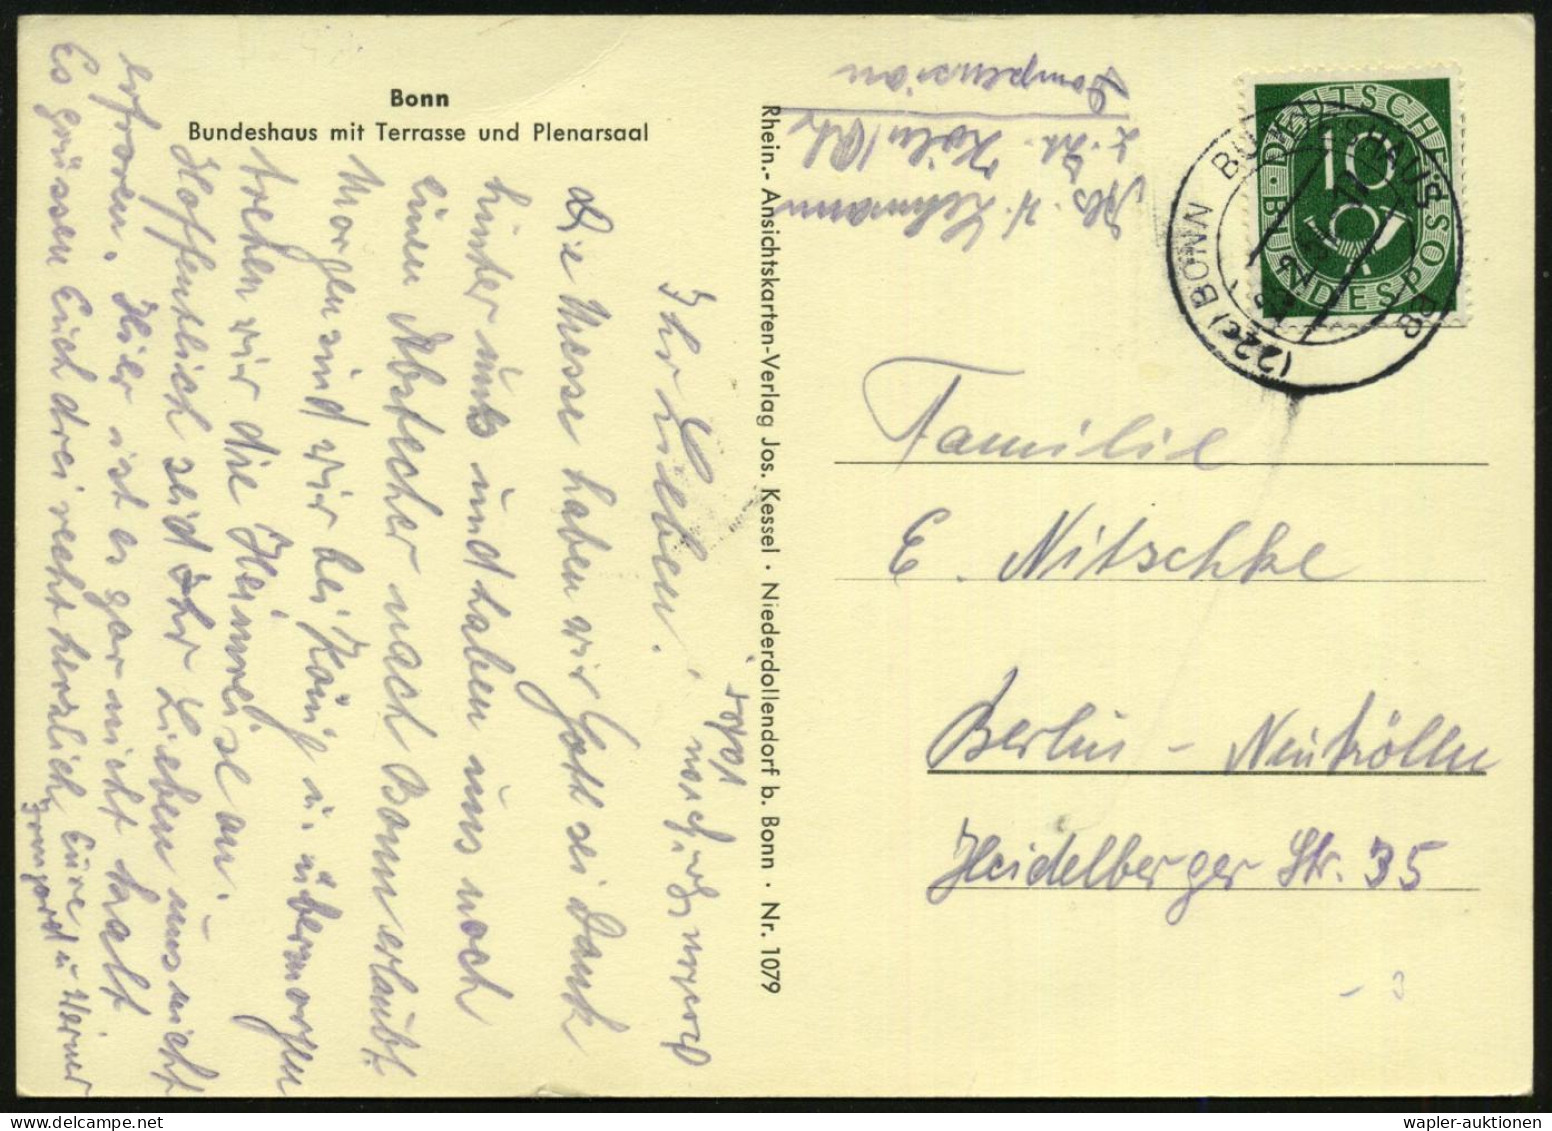 Bonn
Bundeshaus mit Terrasse und Plenarsaal
Ihr Lieben.
Die Messe haben wir Gott sei Dank
hinter uns und haben uns noch
einen Abstecher nach Bonn erlaubt.
Morgen sind wir bei König u. übermorgen
treten wir die Heimreise an.
Hoffentlich seid Ihr Lieben uns nicht
erfroren. Hier ist es gar nicht kalt
Es grüssen Euch drei recht herzlich Eure
Irmgard u. Werner
Rhein.- Ansichtskarten-Verlag Jos. Kessel · Niederdollendorf b. Bonn · Nr. 1079
Abs. H. Lehmann
z. Zt. Köln/Rh
Dompension
DEUTSCHE BUNDESPOST
10
(22c) BONN
BUNDESHAUS
Familie
E. Nitschke
Berlin - Neukölln
Heidelberger Str. 35
wapler-auktionen